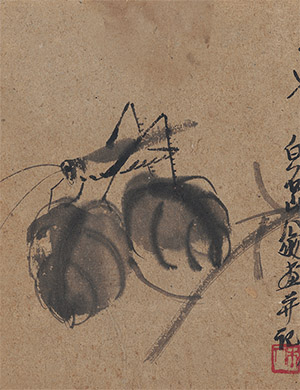 白石翁畫并記